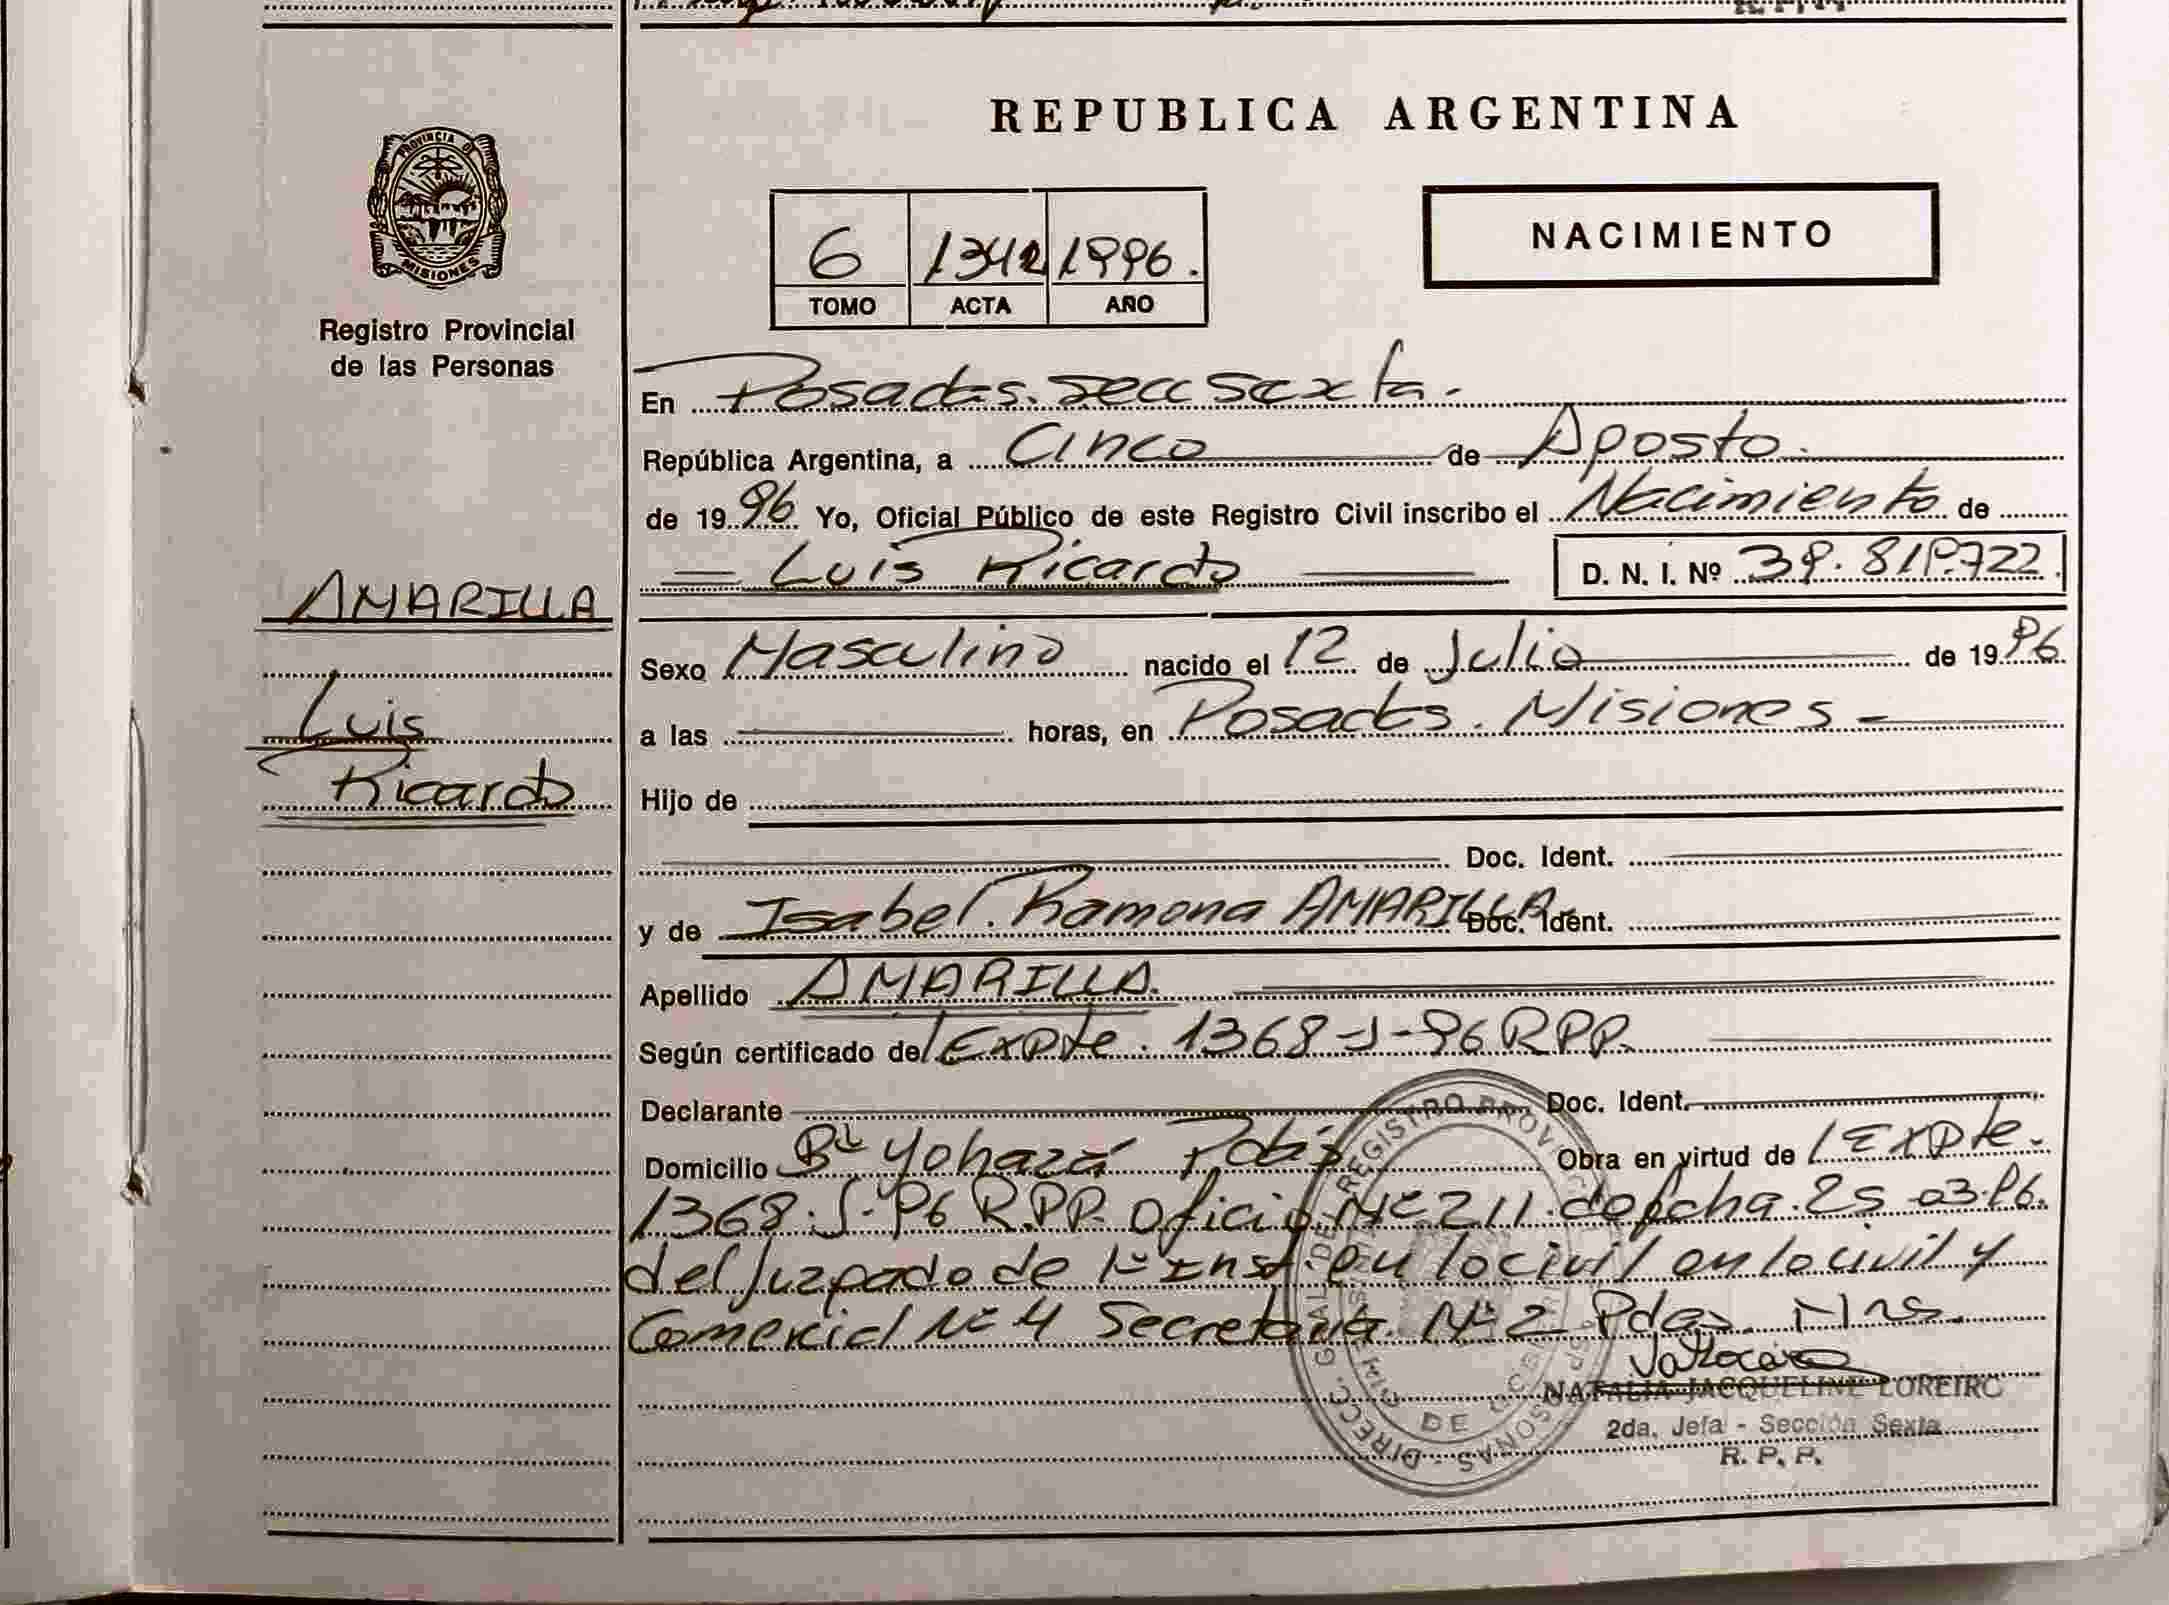 REPUBLICA ARGENTINA
PROVINCIA DE
MISIONES
Registro Provincial
de las Personas
6 1342 1996.
TOMO ACTA AÑO
NACIMIENTO
AMARILLA
Luis
Ricardo
En Posadas. Secc Sexta.
República Argentina, a Cinco de Agosto.
de 1996 Yo, Oficial Público de este Registro Civil inscribo el Nacimiento de
Luis Ricardo D. N. I. Nº 39.819.722.
Sexo Masculino nacido el 12 de Julio de 1996
a las horas, en Posadas. Misiones
Hijo de
Doc. Ident.
y de Isabel. Ramona AMARILLA Doc. Ident.
Apellido AMARILLA.
Según certificado de Expte. 1368-J-96 RPP.
Declarante Doc. Ident.
Domicilio Bº Yohazá Pdas Obra en virtud de Expte.
1368-J-96 R.PP. Oficio Nº 211. de fecha. 25 03.96.
del Juzgado de 1º Inst. en lo civil en lo civil y
Comercial Nº 4 Secretaria. Nº 2 Pdas. Mnes.
NATALIA JACQUELINE LOREIRO
2da. Jefa - Sección Sexta
R. P. P.